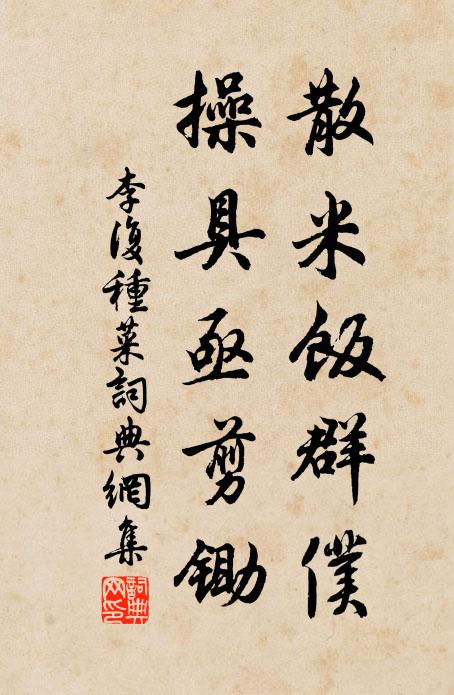 散米飯群僕
操具亟剪鋤
李復種菜詞典網集
詞典網印